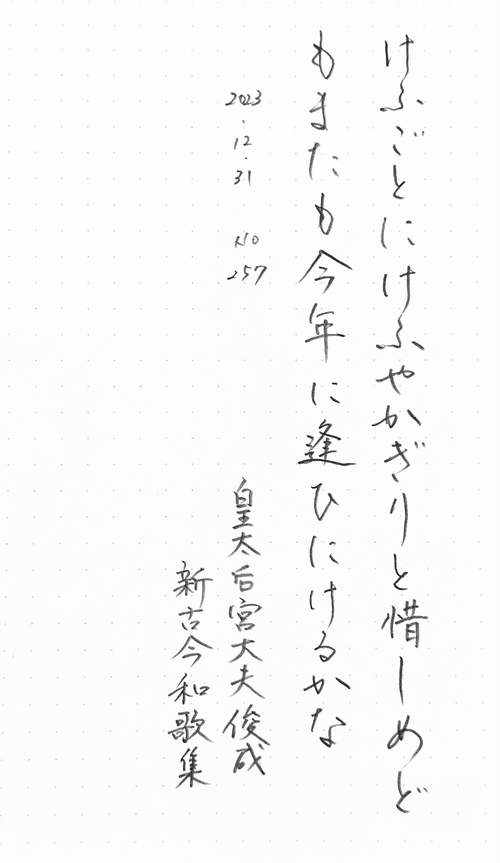 けふごとにけふやかぎりと惜しめど
もまたも今年に逢ひにけるかな
2023.12.31 No 257
皇太后宮大夫俊成
新古今和歌集